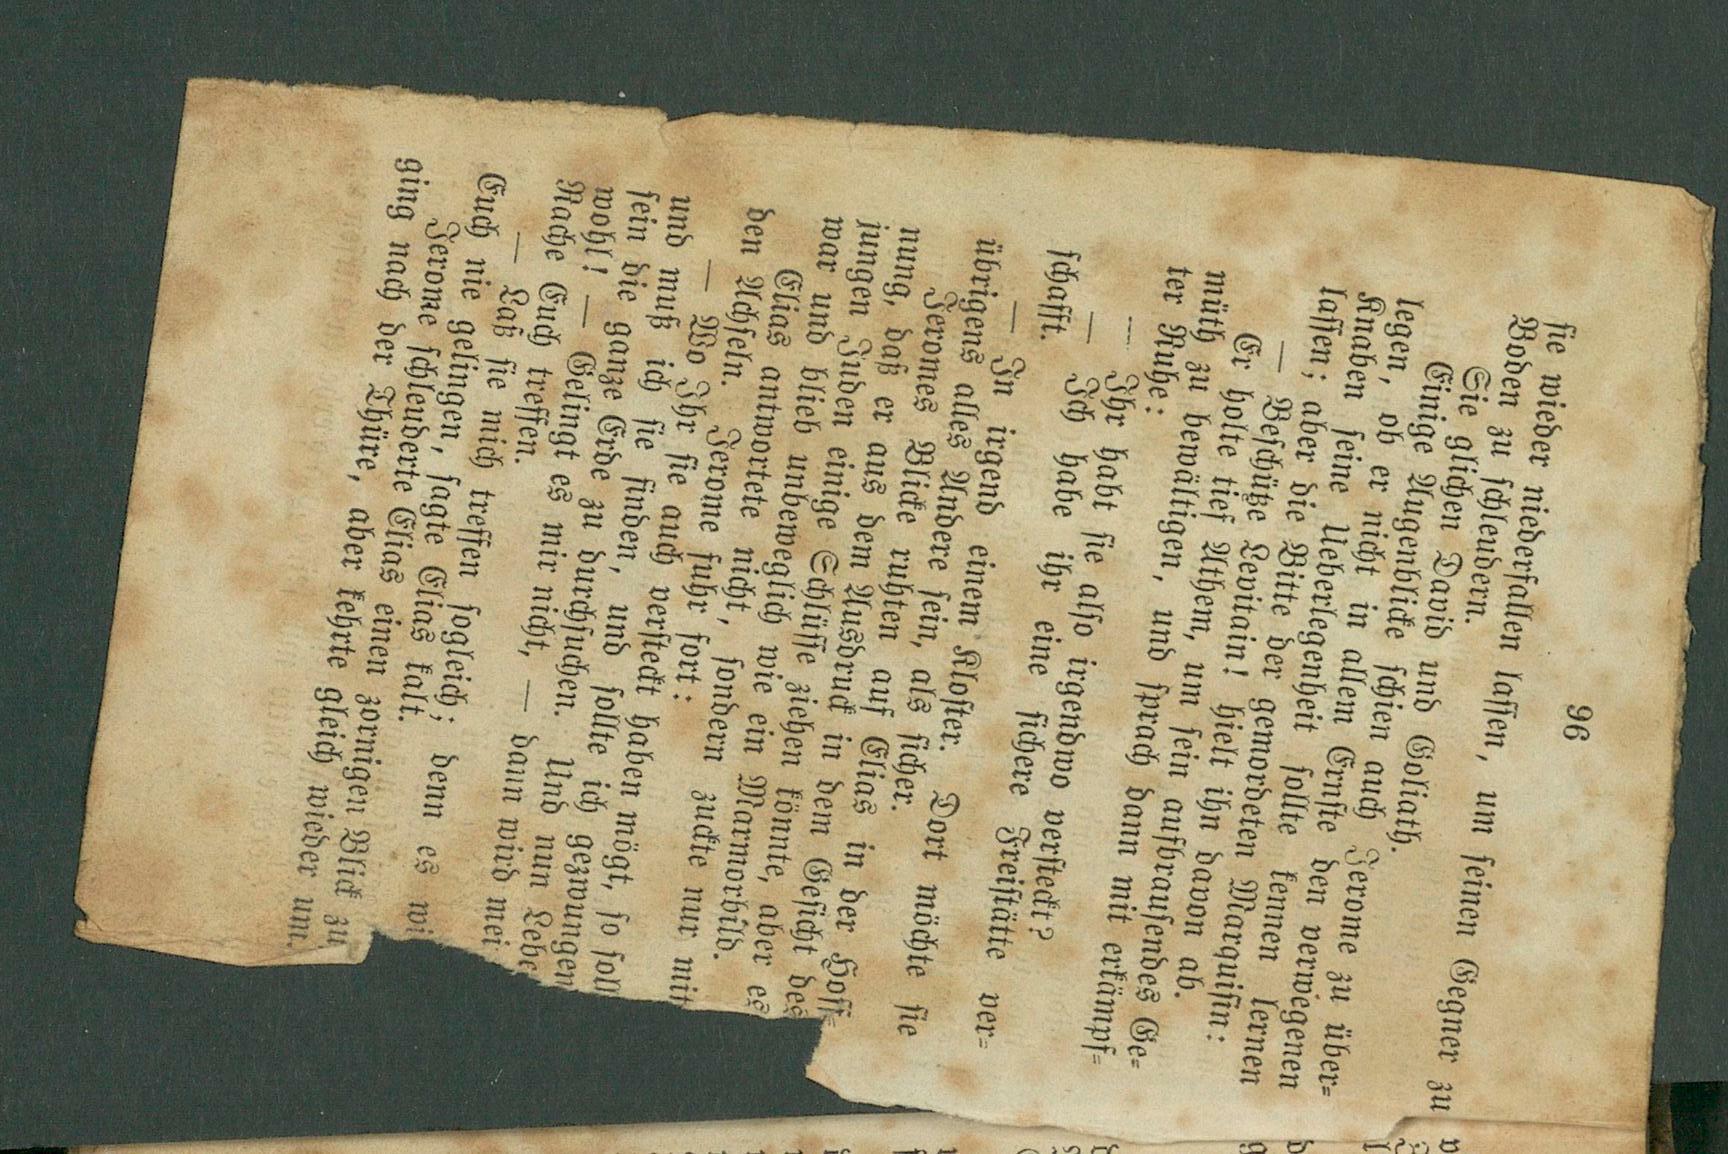 96
sie wieder niederfallen lassen, um seinen Gegner zu
Boden zu schleudern.
Sie glichen David und Goliath.
Einige Augenblicke schien auch Jerome zu über-
legen, ob er nicht in allem Ernste den verwegenen
Knaben seine Ueberlegenheit sollte kennen lernen
lassen; aber die Bitte der gemordeten Marquisin:
— Beschütze Levitain! hielt ihn davon ab.
Er holte tief Athem, um sein aufbrausendes Ge-
müth zu bewältigen, und sprach dann mit erkämpf-
ter Ruhe:
— Ihr habt sie also irgendwo versteckt?
— Ich habe ihr eine sichere Freistätte ver-
schafft.
— In irgend einem Kloster. Dort möchte sie
übrigens alles Andere sein, als sicher.
Jeromes Blicke ruhten auf Elias in der Hoff-
nung, daß er aus dem Ausdruck in dem Gesicht des
jungen Juden einige Schlüsse ziehen könnte, aber es
war und blieb unbeweglich wie ein Marmorbild.
Elias antwortete nicht, sondern zuckte nur mit
den Achseln. Jerome fuhr fort:
— Wo Ihr sie auch versteckt haben mögt, so soll
und muß ich sie finden, und sollte ich gezwungen
sein die ganze Erde zu durchsuchen. Und nun Lebe
wohl! — Gelingt es mir nicht, — dann wird mei
Rache Euch treffen.
— Laß sie mich treffen sogleich; denn es wi
Euch nie gelingen, sagte Elias kalt.
Jerome schleuderte Elias einen zornigen Blick zu
ging nach der Thüre, aber kehrte gleich wieder um.